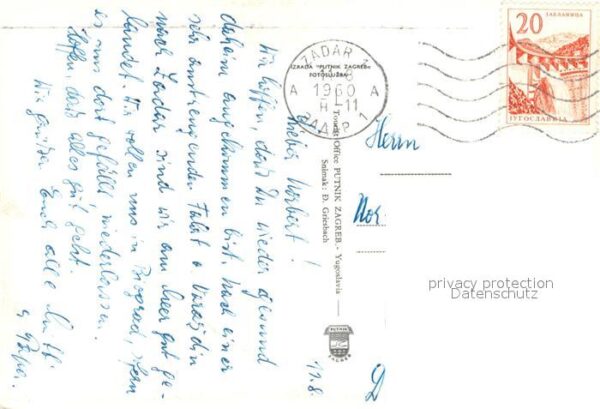 12.8.
Lieber Norbert!
Wir hoffen, daß Du wieder gesund
daheim angekommen bist. Nach einer
sehr anstrengenden Fahrt v. Varaždin
nach Zadar sind wir am Meer gut ge-
landet. Wir wollen uns in Biograd, wenn
es uns dort gefällt niederlassen.
Hoffen, daß alles gut geht.
Wir grüßen Euch alle
Papa.
IZRADA "PUTNIK ZAGREB"
FOTOSLUŽBA
Tourist Office PUTNIK ZAGREB - Yugoslavia
Snimak: Đ. Griesbach
PUTNIK
ZAGREB
ZADAR 1
A 1960 A
11
ЗАДАР 1
20
ЈАБЛАНИЦА
ЈУГОСЛАВИЈА
Herrn
Nor
D
privacy protection
Datenschutz